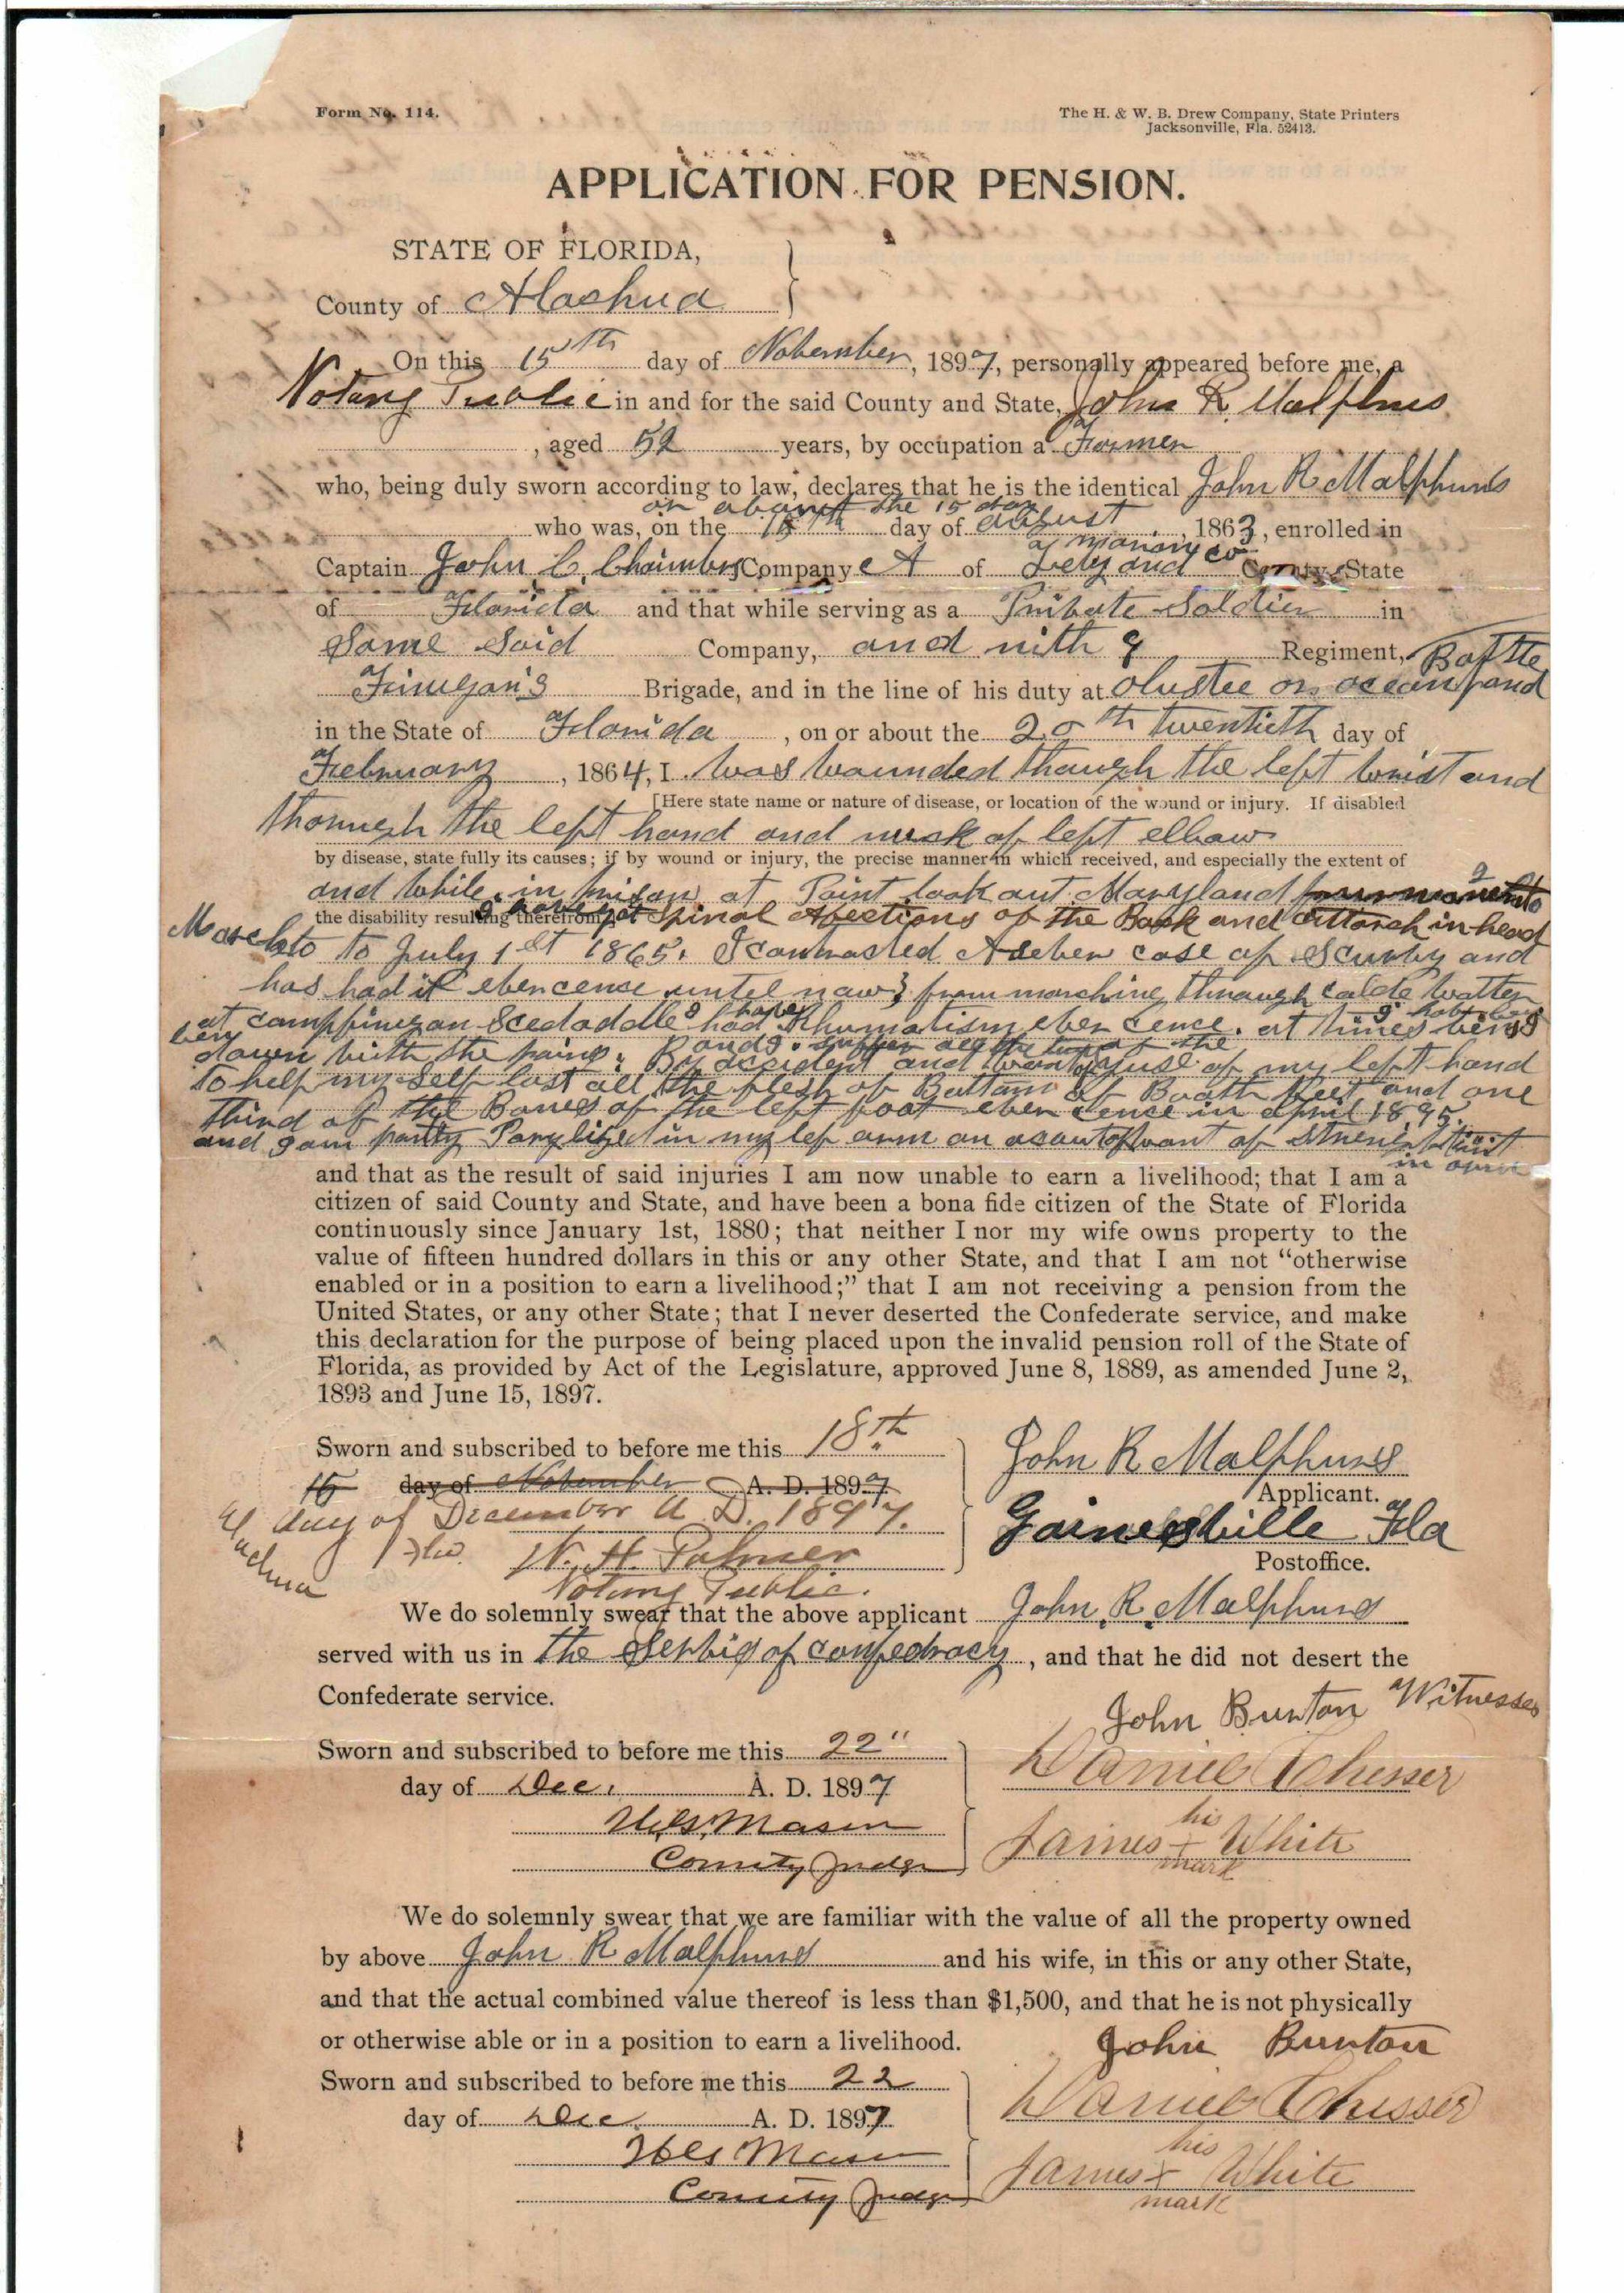 Form No. 114.
The H. & W. B. Drew Company, State Printers
Jacksonville, Fla. 52413.
APPLICATION FOR PENSION.
STATE OF FLORIDA,
County of Alachua
On this 15th day of November, 1897, personally appeared before me, a
Notary Public in and for the said County and State, John R Malphus
, aged 52 years, by occupation a Farmer
who, being duly sworn according to law, declares that he is the identical John R Malphurs
or about the 15 day
who was, on the 15th day of August, 1863, enrolled in
of Marion co
Captain John C. Chambers Company A of Levy and County State
of Florida and that while serving as a Pribate Soldier in
Same Said Company, and nith 9 Regiment, Battle
Finegan's Brigade, and in the line of his duty at Olustee or ocean pond
in the State of Florida, on or about the 20th twentieth day of
February, 1864, I was wounded though the left wrist and
[Here state name or nature of disease, or location of the wound or injury. If disabled
through the left hand and of left elbow
by disease, state fully its causes; if by wound or injury, the precise manner in which received, and especially the extent of
and while in prison at Point look out Maryland
the disability resulting therefrom.] Spinal Afections of the Back and in head
to July 1st 1865. I contracted case of Scurvy and
has had it ever cence until now from marching through watter
at camp finegan had have Rhumatism ever cence. at times
down with the pains. By accident and want of use of my left hand
To help my self lost all the flesh of Bottom of Booth feet and one
third of the Bones of the left foot ever cence in April 1895
and I am partly Parylized in my lef arm on acount of want of
and that as the result of said injuries I am now unable to earn a livelihood; that I am a
citizen of said County and State, and have been a bona fide citizen of the State of Florida
continuously since January 1st, 1880; that neither I nor my wife owns property to the
value of fifteen hundred dollars in this or any other State, and that I am not “otherwise
enabled or in a position to earn a livelihood;” that I am not receiving a pension from the
United States, or any other State; that I never deserted the Confederate service, and make
this declaration for the purpose of being placed upon the invalid pension roll of the State of
Florida, as provided by Act of the Legislature, approved June 8, 1889, as amended June 2,
1893 and June 15, 1897.
Sworn and subscribed to before me this 18th
15 day of November A. D. 1897
day of December A. D. 1897.
Alachua Fla.
N. H. Palmer
Notary Public.
John R Malphurs
Applicant.
Gainesville Fla
Postoffice.
We do solemnly swear that the above applicant John R. Malphurs
served with us in the Serbis of confedracy, and that he did not desert the
Confederate service.
John Burton Witnesses
Sworn and subscribed to before me this 22"
day of Dec. A. D. 1897
Mason
County Judge
Daniel Chesser
his
James + White
mark
We do solemnly swear that we are familiar with the value of all the property owned
by above John R Malphurs and his wife, in this or any other State,
and that the actual combined value thereof is less than $1,500, and that he is not physically
or otherwise able or in a position to earn a livelihood.
John Burton
Sworn and subscribed to before me this 22
day of Dec A. D. 1897
Mason
County Judge
Daniel Chesser
his
James + White
mark